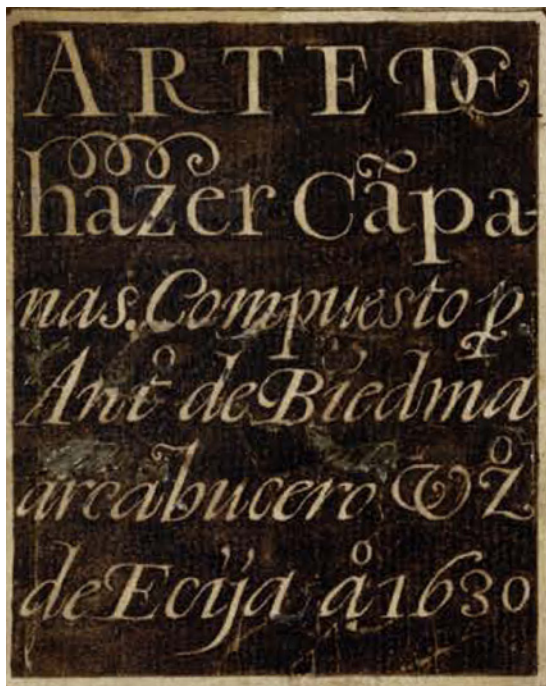 ARTE DE
hazer Cãpa-
nas. Compuesto p
Antº de Biedma
arcabucero y vzº
de Ecija aº 1630